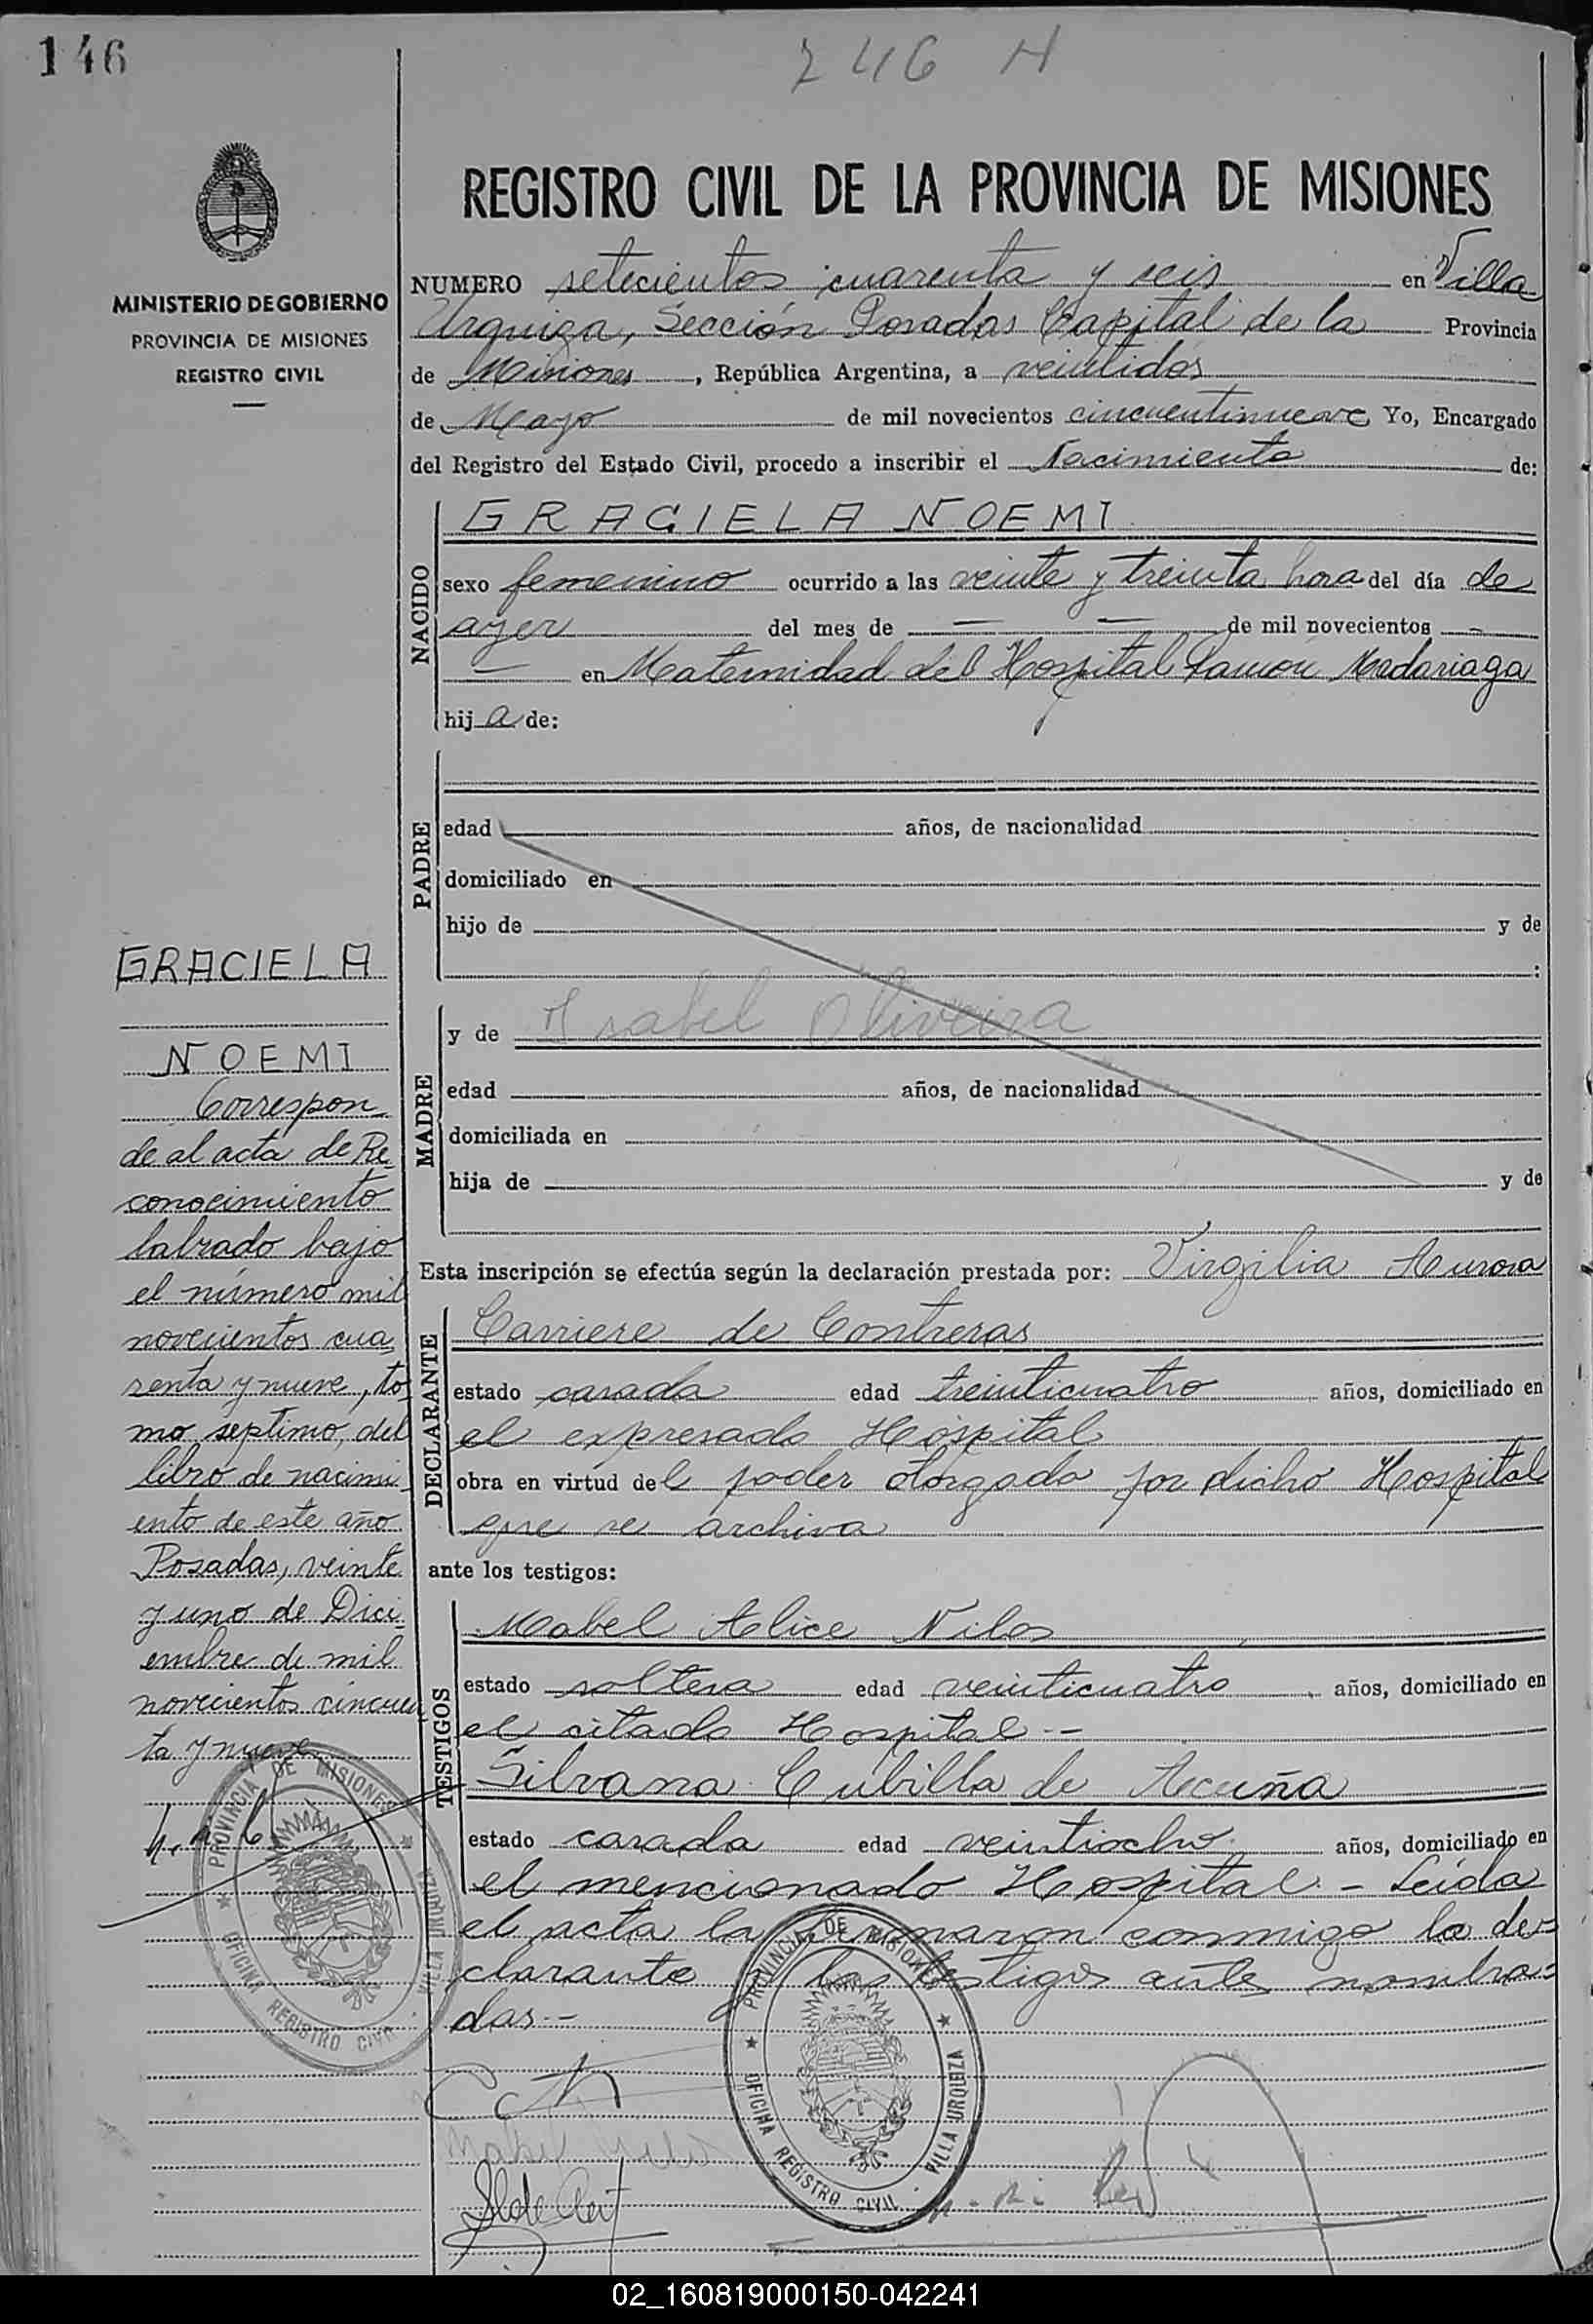 146
746 N
MINISTERIO DE GOBIERNO
PROVINCIA DE MISIONES
REGISTRO CIVIL
REGISTRO CIVIL DE LA PROVINCIA DE MISIONES
NUMERO setecientos cuarenta y seis en Villa
Urquiza, Sección Posadas Capital de la Provincia
de Misiones, República Argentina, a veintidos
de Mayo de mil novecientos cincuentinueve Yo, Encargado
del Registro del Estado Civil, procedo a inscribir el Nacimiento de:
NACIDO
GRACIELA NOEMI
sexo femenino ocurrido a las veinte y treinta hora del día de
ayer del mes de — — de mil novecientos —
— en Maternidad del Hospital Ramón Madariaga
hija de:
PADRE
edad años, de nacionalidad
domiciliado en
hijo de y de
:
MADRE
y de Isabel Oliveira
edad años, de nacionalidad
domiciliada en
hija de y de
Esta inscripción se efectúa según la declaración prestada por: Virgilia Aurora
DECLARANTE
Carriere de Contreras
estado casada edad treinticuatro años, domiciliado en
el expresado Hospital
obra en virtud del poder otorgado por dicho Hospital
que se archiva
ante los testigos:
TESTIGOS
Mabel Alice Nilos
estado soltera edad veinticuatro años, domiciliado en
el citado Hospital.-
Silvana Cubilla de Acuña
estado casada edad veintiocho años, domiciliado en
el mencionado Hospital.- Leída
el acta la firmaron conmigo la de=
clarante y las testigos antes nombra=
das.-
GRACIELA
NOEMI
Correspon
de al acta de Re
conocimiento
labrado bajo
el número mil
novecientos cua
renta y nueve, to
mo septimo, del
libro de nacimi
ento de este año
Posadas, veinte
y uno de Dici
embre de mil
novecientos cincuen
ta y nueve
PROVINCIA DE MISIONES
OFICINA REGISTRO CIVIL - VILLA URQUIZA
PROVINCIA DE MISIONES
OFICINA REGISTRO CIVIL - VILLA URQUIZA
Mabel Nilos
02_160819000150-042241